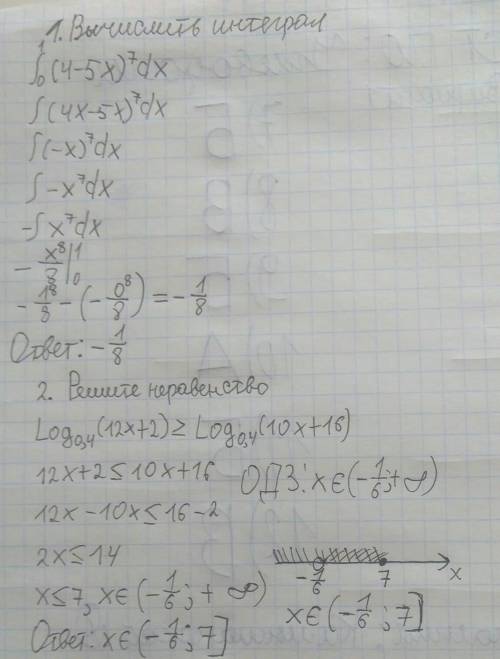 1. Вычислить интеграл
∫₀¹(4-5x)⁷dx
∫(4x-5x)⁷dx
∫(-x)⁷dx
∫-x⁷dx
-∫x⁷dx
- x⁸/8 |₀¹
- 1⁸/8 - (- 0⁸/8) = - 1/8
Ответ: - 1/8
2. Решите неравенство
Log₀,₄(12x+2) ≥ Log₀,₄(10x+16)
12x+2 ≤ 10x+16 ОДЗ: x∈(-1/6; +∞)
12x-10x ≤ 16-2
2x ≤ 14
-1/6 7 x
x ≤ 7, x∈(-1/6; +∞)
x∈(-1/6; 7]
Ответ: x∈(-1/6; 7]